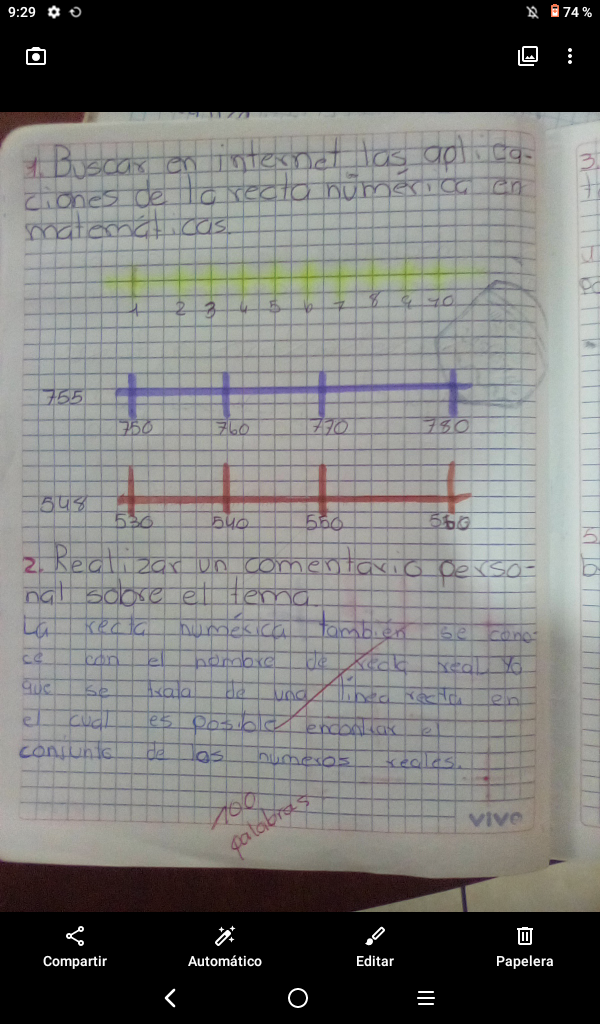 9:29 74 %
1. Buscar en internet las aplica-
ciones de la recta númérica en
matemáticas.
1 2 3 4 5 6 7 8 9 10
755
750 760 770 780
548
530 540 550 560
2. Realizar un comentario perso-
nal sobre el tema.
La recta numérica también se cono-
ce con el nombre de recta real Ya
que se trata de una línea recta en
el cual es posible encontrar el
conjunto de los numeros reales.
100
palabras
vivo
3.
5.
b
Compartir Automático Editar Papelera